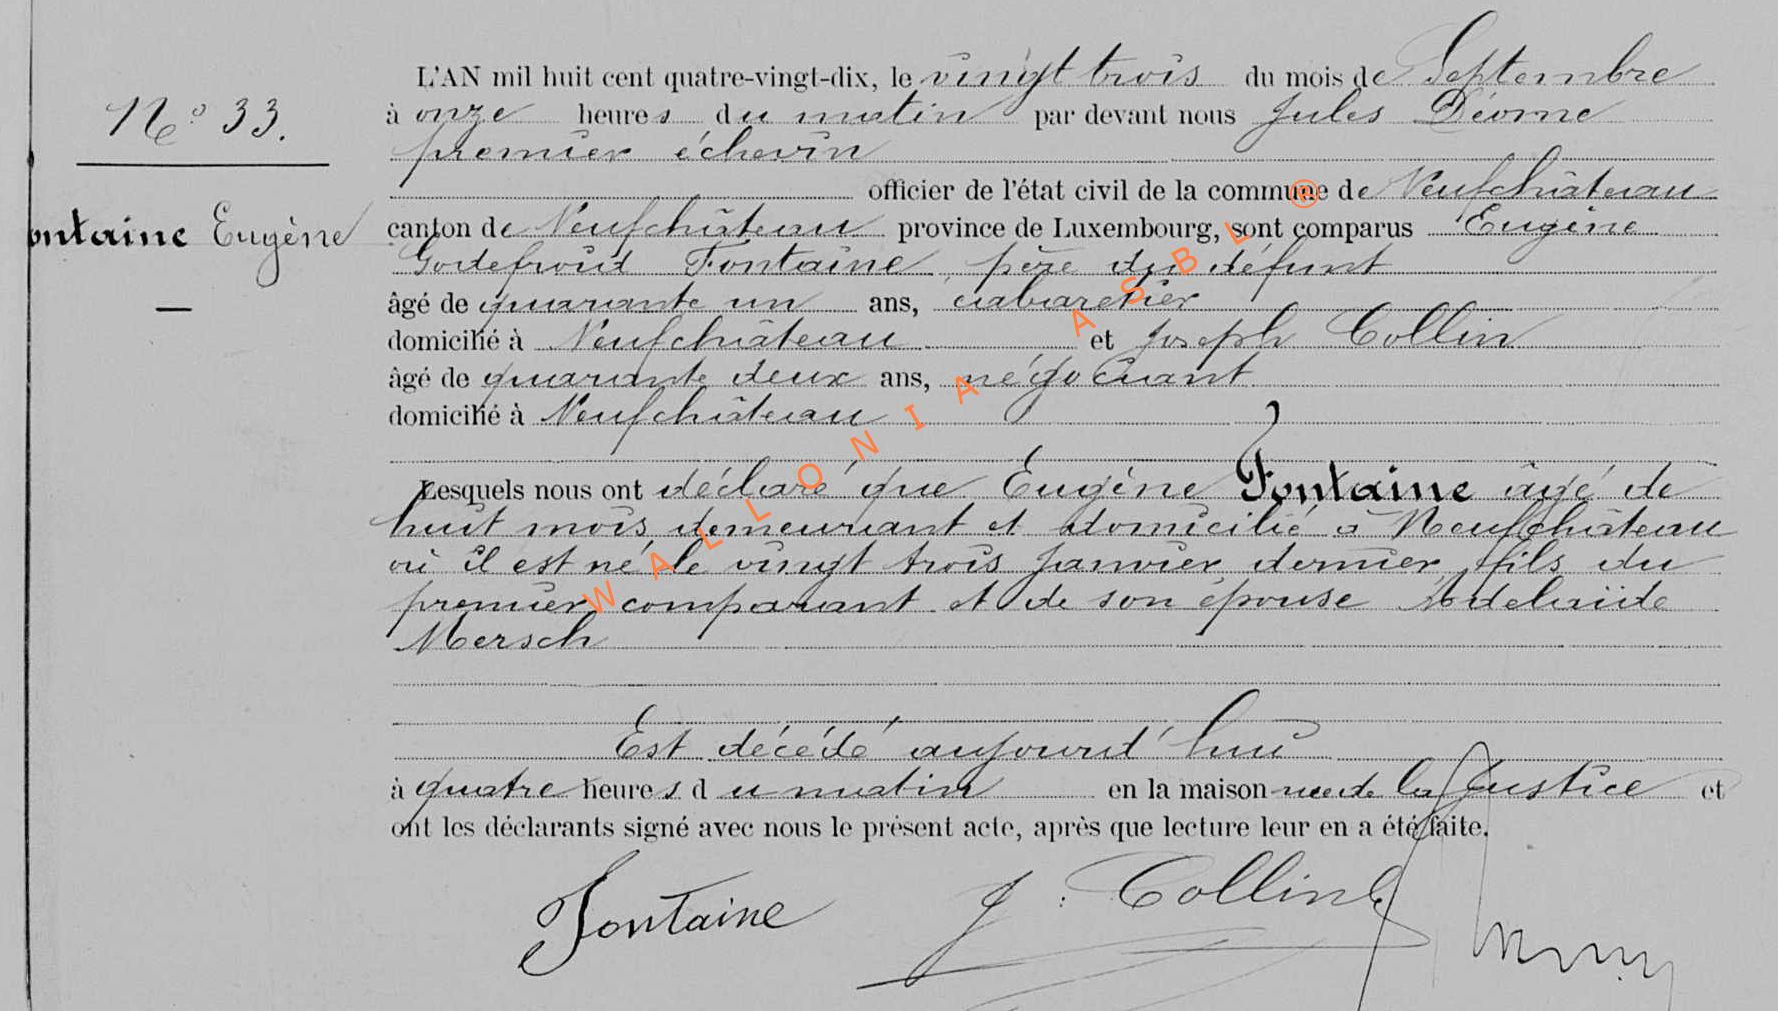 L'AN mil huit cent quatre-vingt-dix, le vingt trois du mois de Septembre
N° 33.
à onze heures du matin par devant nous Jules Déome
premier échevin
officier de l'état civil de la commune de Neufchâteau
ontaine Eugène
canton de Neufchâteau province de Luxembourg, sont comparus Eugène
Godefroid Fontaine, père du défunt
âgé de quarante un ans, cabaretier
domicilié à Neufchâteau et Joseph Collin
âgé de quarante deux ans, négociant
domicilié à Neufchâteau
Lesquels nous ont déclaré que Eugène Fontaine âgé de
huit mois, demeurant et domicilié à Neufchâteau
où il est né le vingt trois Janvier dernier, fils du
premier comparant et de son épouse Adelaïde
Mersch
Est décédé aujourd'hui
à quatre heures du matin en la maison rue de la Justice et
ont les déclarants signé avec nous le présent acte, après que lecture leur en a été faite.
Fontaine J. Collin
WALLONIA ASBL ®